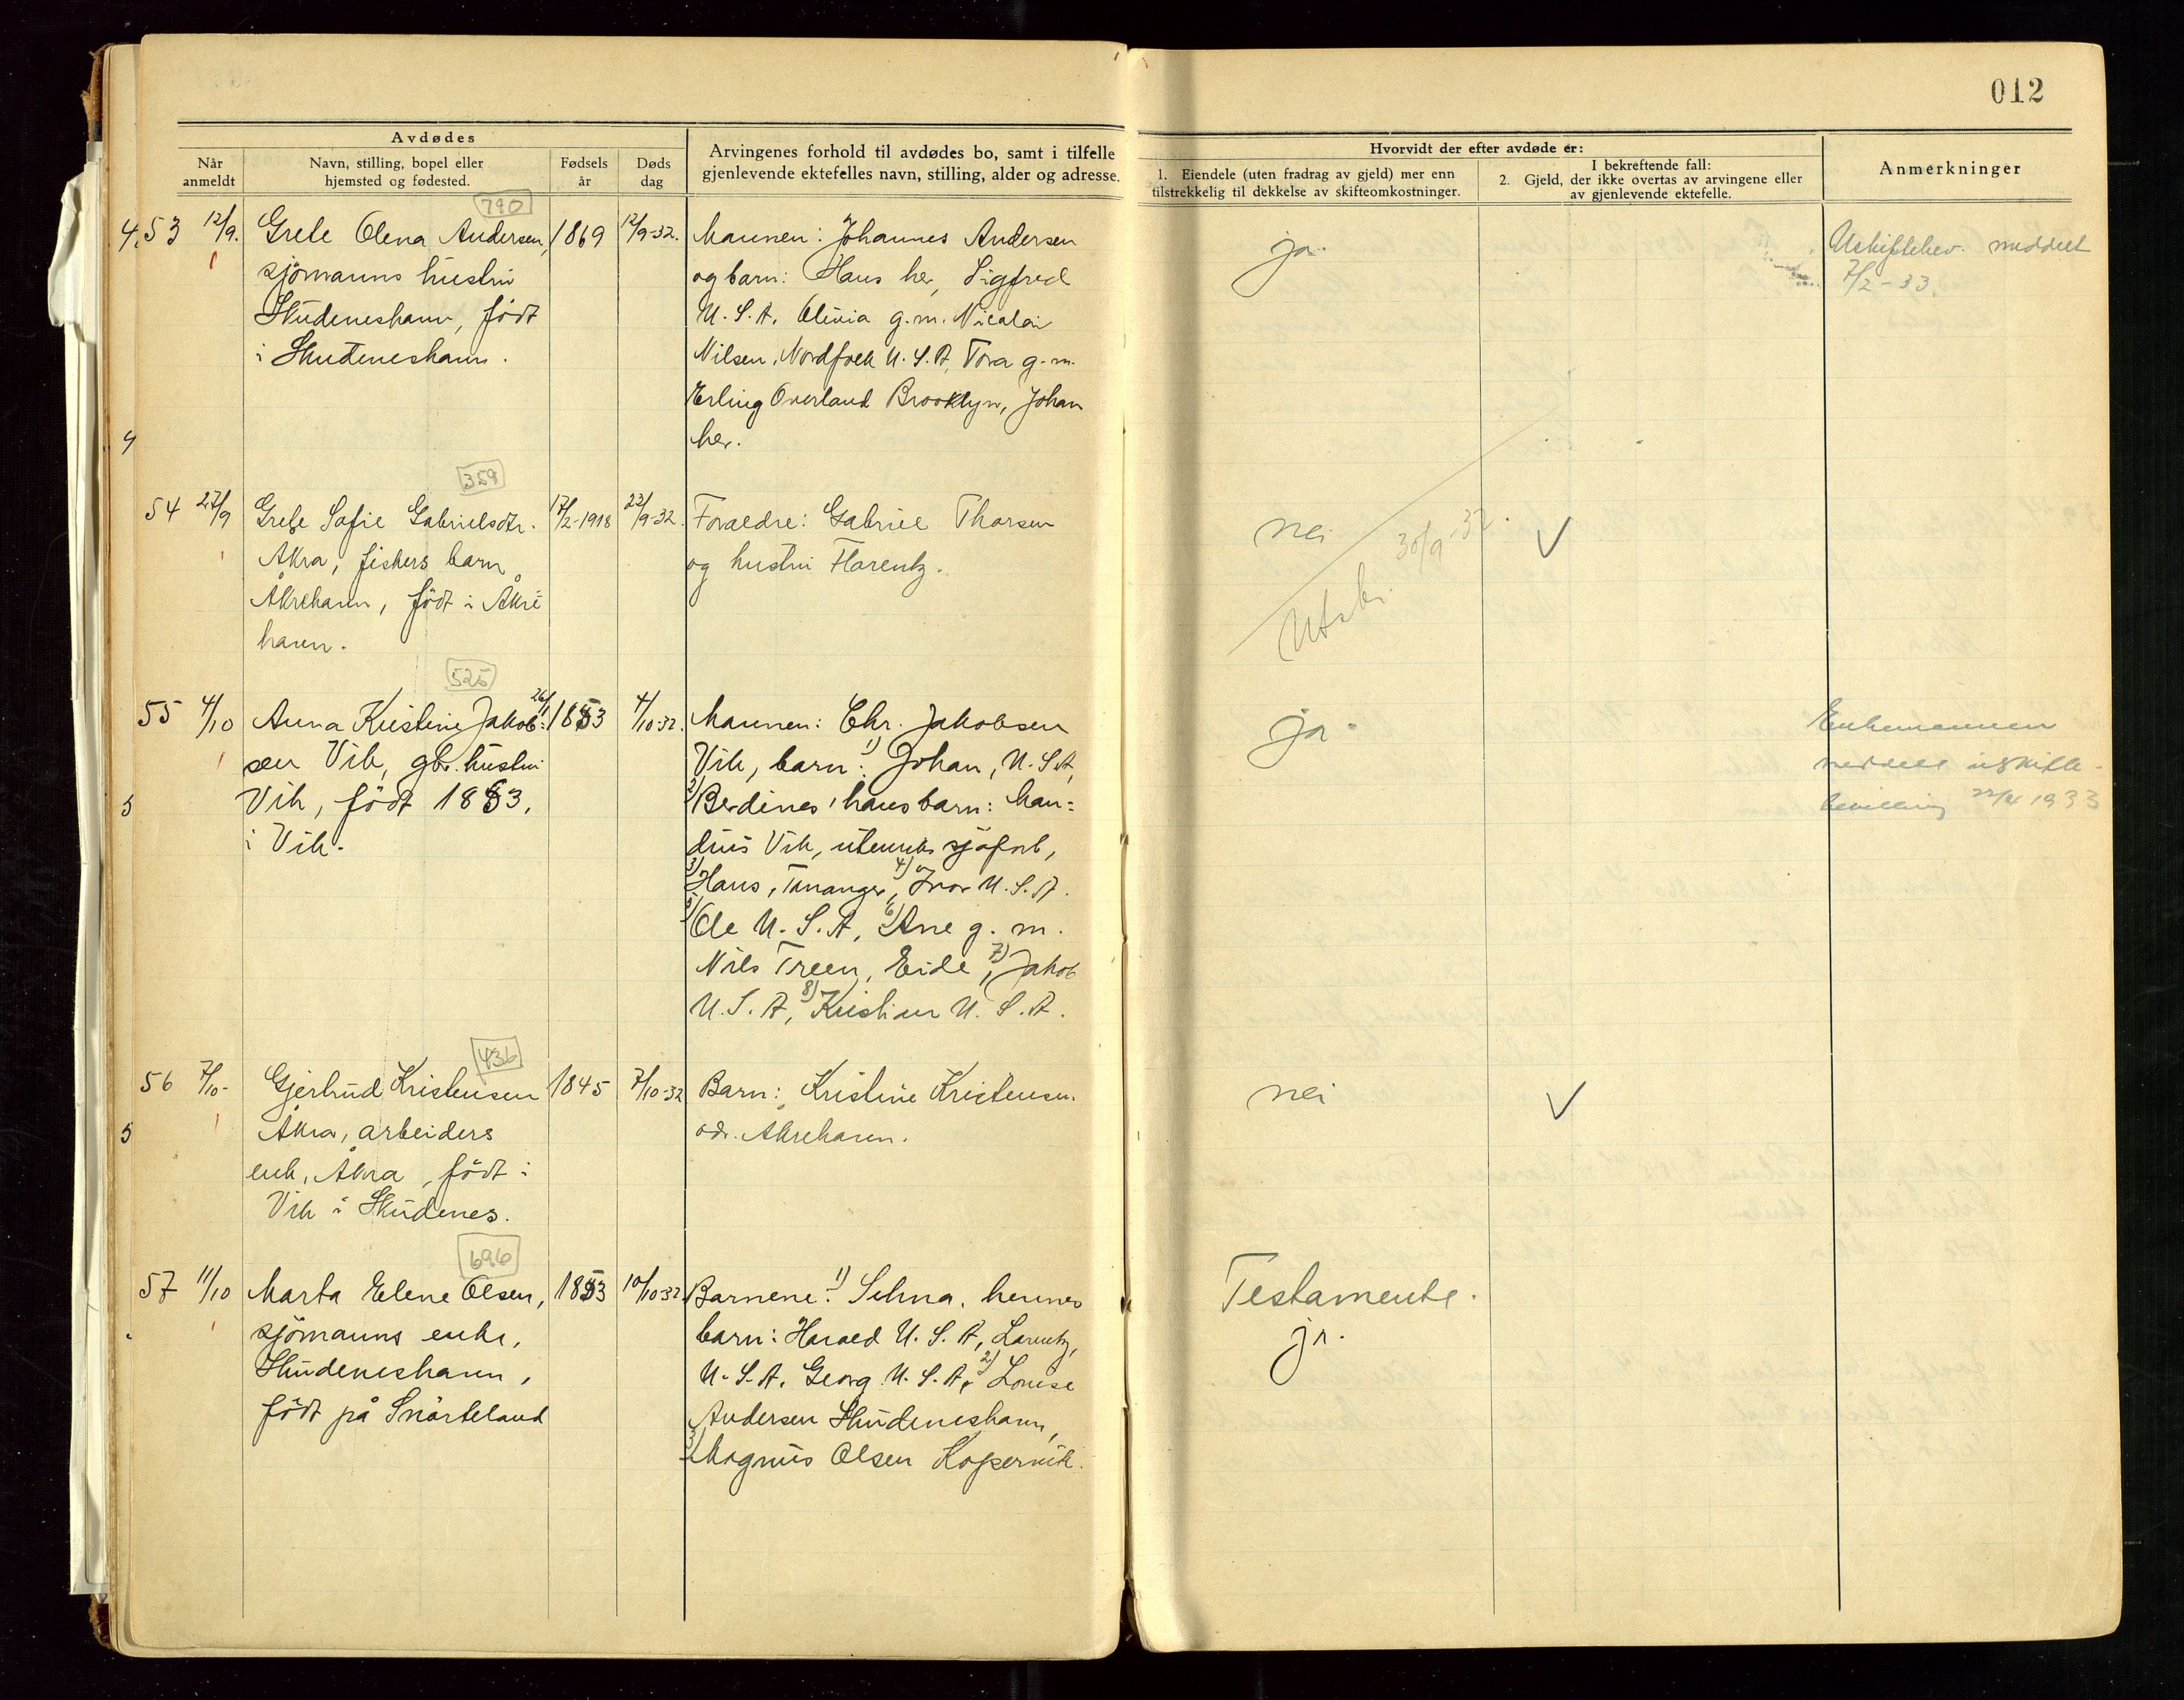 012
Avdødes
Når
anmeldt
Navn, stilling, bopel eller
hjemsted og fødested.
Fødsels
år
Døds
dag
Arvingenes forhold til avdødes bo, samt i tilfelle
gjenlevende ektefelles navn, stilling, alder og adresse.
Hvorvidt der efter avdøde er:
1. Eiendele (uten fradrag av gjeld) mer enn
tilstrekkelig til dekkelse av skifteomkostninger.
I bekreftende fall:
2. Gjeld, der ikke overtas av arvingene eller
av gjenlevende ektefelle.
Anmerkninger
790
4, 53 12/9. Grete Olena Andersen, 1869 12/9-32.
sjömanns hustru
Skudeneshavn, födt
i Skudeneshavn.
Mannen: Johannes Andersen
og barn: Hans her, Sigfred
U.S.A. Olivia g.m. Nicolai
Nilsen, Nordfolk U.S.A, Tora g.m.
Erling Overland Brooklyn, Johan
her.
ja.
Uskiftebev. meddelt
7/2-33.
4
359
54 27/9 Grete Sofie Gabrielsdtr. 17/2-1918 23/9-32.
Åkra, fiskers barn
Åkrehavn, födt i Åkre
havn.
Foraeldre: Gabriel Thorsen
og hustru Florentz.
nei
Utskr. 30/9-32.
525
55 4/10 Anna Kristine Jakob= 26/1 1853 4/10-32.
sen Vik, gbr. hustru
Vik, födt 1853,
i Vik.
Mannen: Chr. Jakobsen
Vik, barn: 1) Johan, U.S.A,
2) Berdines, hans barn: Lau=
dius Vik, utenriks sjöfart,
3) Hans, Tananger, 4) Ivor U.S.A.
5) Ole U.S.A, 6) Ane g.m.
Nils Treen, Eide, 7) Jakob
U.S.A, 8) Kristian U.S.A.
ja.
Enkemannen
meddelt uskifte-
bevilling 22/4 1933
5
436
56 7/10- Gjertrud Kristensen 1845 7/10-32
Åkra, arbeiders
enk, Åkra, födt i
Vik i Skudenes.
Barn: Kristine Kristensen
adr. Åkrehavn.
nei
5
696
57 11/10 Marta Elene Olsen, 1853 10/10-32
sjömanns enke,
Skudeneshavn,
födt på Snörteland
Barnene: 1) Selma, hennes
barn: Harald U.S.A, Larentz,
U.S.A, Georg U.S.A, 2) Louise
Andersen Skudeneshavn,
3) Magnus Olsen Kopervik.
Testamente.
ja.